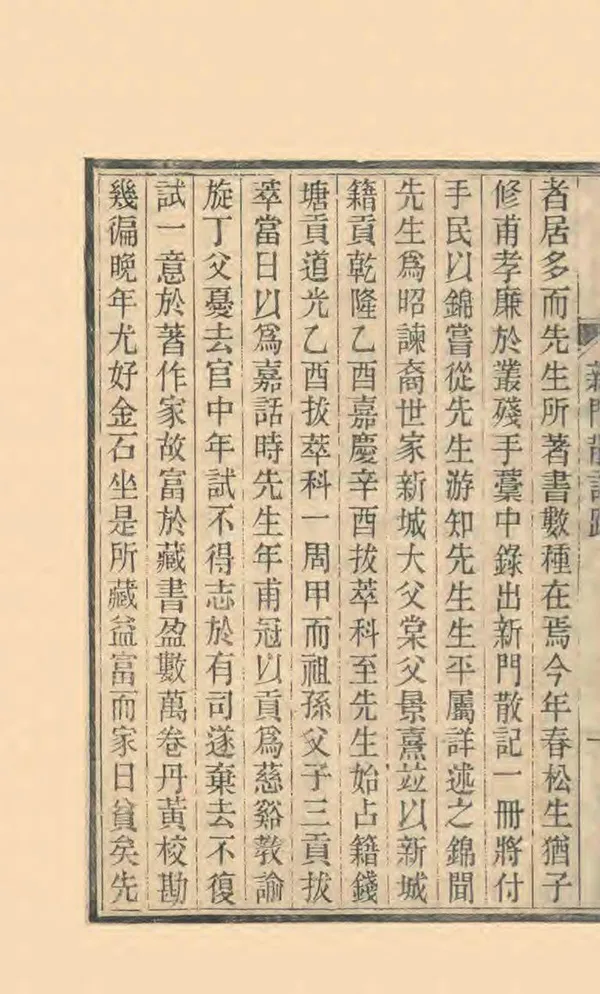 新門散記跋
一
者居多而先生所著書數種在焉今年春松生猶子
修甫孝廉於叢殘手藁中錄出新門散記一冊將付
手民以錦嘗從先生游知先生生平屬詳述之錦聞
先生爲昭諫裔世家新城大父棠父景熹竝以新城
籍貢乾隆乙酉嘉慶辛酉拔萃科至先生始占籍錢
塘貢道光乙酉拔萃科一周甲而祖孫父子三貢拔
萃當日以爲嘉話時先生年甫冠以貢爲慈谿教諭
旋丁父憂去官中年試不得志於有司遂棄去不復
試一意於著作家故富於藏書盈數萬卷丹黃校勘
幾徧晚年尤好金石坐是所藏益富而家日貧矣先